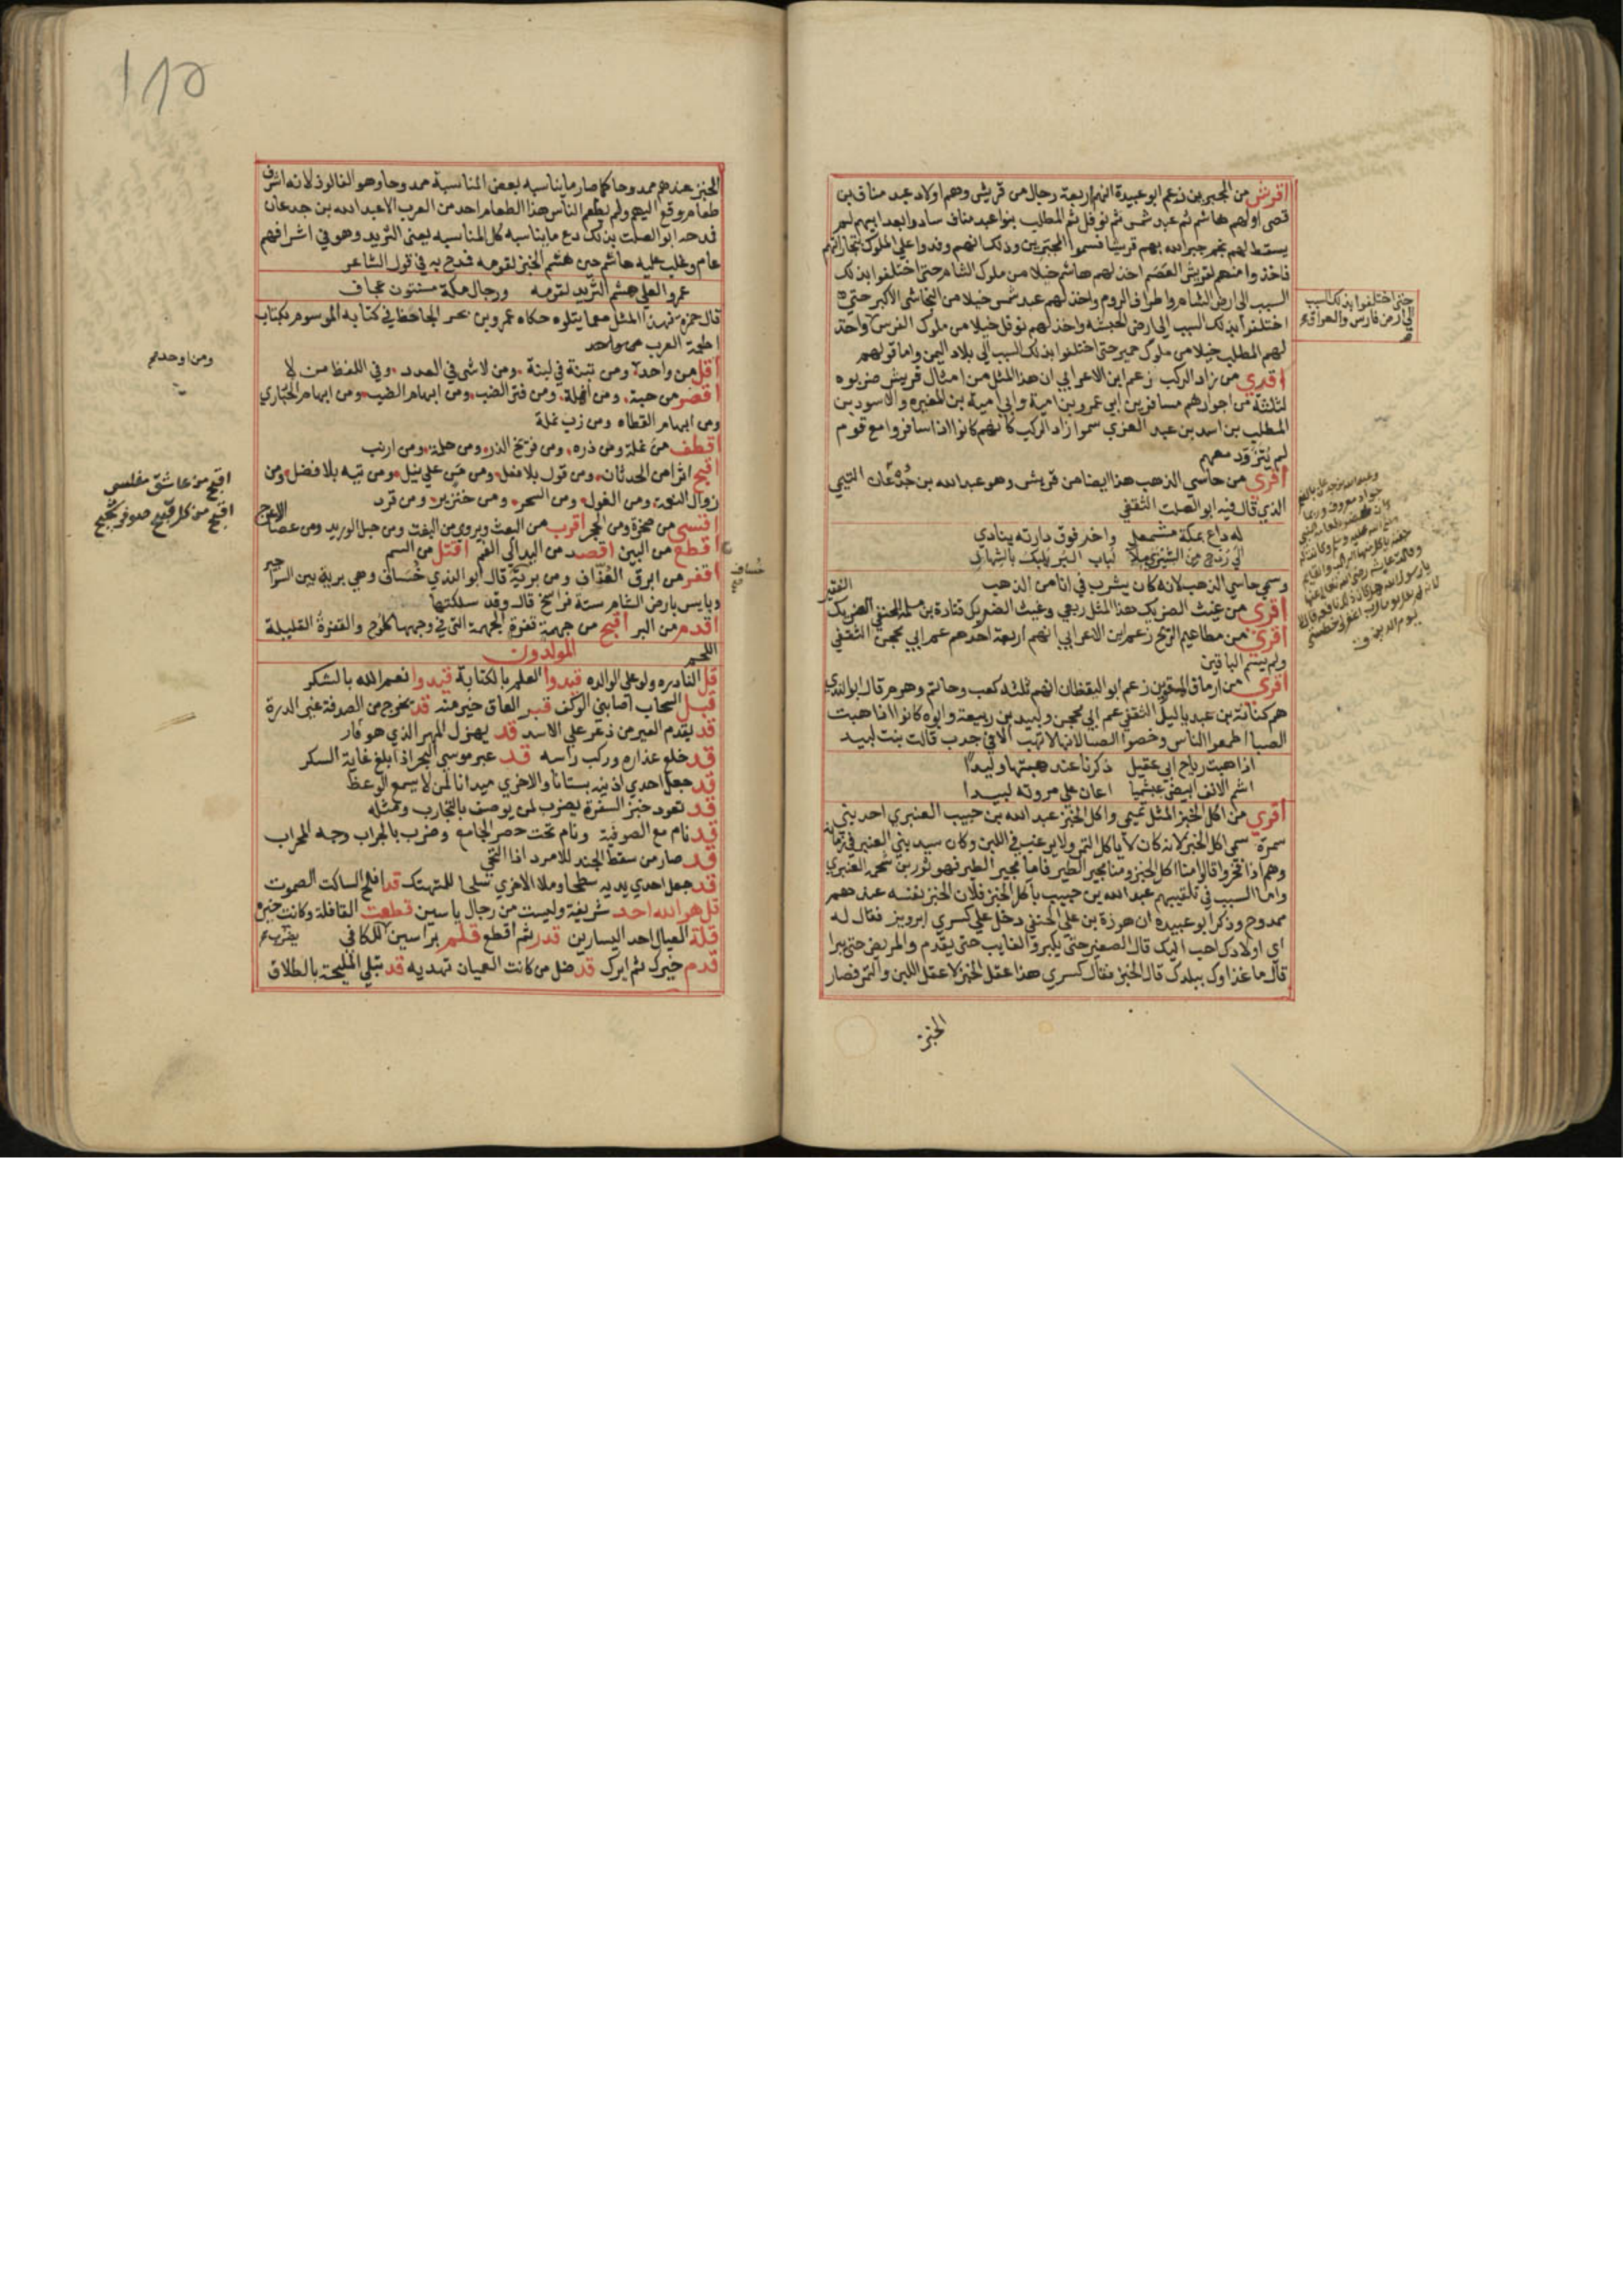 اقرش من المجبرين زعم ابو عبيدة انهم اربعة رجال من قريش وهم اولاد عبد مناف بن
قصى اولهم هاشم ثم عبد شمس ثم نوفل ثم المطلب بنو عبد مناف سادوا بعد ابيهم لم
يسقط لهم نجم جبر الله بهم قريشا فسموا المجبرين وذلك انهم وفدوا على الملوك بتجاراتهم
فاخذوا منهم لقريش العصم اخذ لهم هاشم حبلا من ملوك الشام حتى اختلفوا بذلك
السبب الى ارض الشام واطراف الروم واخذ لهم عبد شمس حبلا من النجاشى الاكبر حتى
اختلفوا بذلك السبب الى ارض الحبشه واخذ لهم نوفل حبلا من ملوك الفرس واخذ
حتى اختلفوا بذلك السبب
الى ارض فارس والعراق
لهم المطلب حبلا من ملوك حمير حتى اختلفوا بذلك السبب الى بلاد اليمن واما قولهم
اقرى من زاد الركب زعم ابن الاعرابي ان هذا المثل من امثال قريش ضربوه
لثلثة من اجوادهم مسافر بن ابي عمرو بن امية وابي امية بن المغيره والاسود بن
المطلب بن اسد بن عبد العزي سموا زاد الركب لانهم كانوا اذا سافروا مع قوم
لم يتزود معهم
اقرى من حاسي الذهب هذا ايضا من قريش وهو عبد الله بن جدعان التيمي
الذي قال فيه ابو الصلت الثقفي
له داع بمكة مشمعل واخر فوق دارته ينادي
الى ردح من الشيزى ملا لباب البر يلبك بالشهاد
وسمي حاسي الذهب لانه كان يشرب في انا من الذهب
اقرى من غيث الضريك هذا المثل ربعي وغيث الضريك قتادة بن مسلمة الحنفي والضريك الفقير
اقرى من مطاعيم الريح زعم ابن الاعرابي انهم اربعة احدهم عم ابي محجن الثقفي
ولم يسم الباقين
اقرى من ارماق المقوين زعم ابو اليقظان انهم ثلثه كعب وحاتم وهرم قال ابو الندي
هم كنانة بن عبد ياليل الثقفي عم ابي محجن ولبيد بن ربيعة وابوه كانوا اذا هبت
الصبا اطعموا الناس وخصوا الصبا لانها لا تهب الا في جدب قالت بنت لبيد
اذا هبت رياح ابي عقيل ذكرنا عند هبتها وليدا
اشم الانف ابيض عبشميا اعان على مروته لبيدا
اقرى من اكل الخبز المثل تميمي واكل الخبز عبد الله بن حبيب العنبري احد بني
سمرة سمي اكل الخبز لانه كان لا ياكل التمر ولا يرغب في اللبن وكان سيد بني العنبر في زمانه
وهم اذا فخروا قالوا منا اكل الخبز ومنا مجير الطير فاما مجير الطير فهو ثور بن شحمه العنبري
واما السبب في تلقيبهم عبد الله بن حبيب باكل الخبز فلان الخبز نفسه عندهم
ممدوح وذكر ابو عبيده ان هوذة بن علي الحنفي دخل على كسري ابرويز فقال له
اي اولادك احب اليك قال الصغير حتى يكبر والغايب حتى يقدم والمريض حتى يبرا
قال ما غذاوك ببلدك قال الخبز فقال كسري هذا عقل الخبز لا عقل اللبن والتمر فصار
الخبز
١٨٥
الخبز عندهم ممدوحا كما صار ما يناسبه بعض المناسبة ممدوحا وهو الفالوذ لانه اشرف
طعام وقع اليهم ولم يطعم الناس هذا الطعام احد من العرب الا عبد الله بن جدعان
فمدحه ابو الصلت بذلك دع ما يناسبه كل المناسبه يعنى الثريد وهو في اشرافهم
عام وغلب عليه هاشم حين هشم الخبز لقومه فمدح به في قول الشاعر
عمرو العلى هشم الثريد لقومه ورجال مكة مسنتون عجاف
قال حمزه فهذا المثل مما يتلوه حكاه عمرو بن بحر الجاحظ في كتابه الموسوم بكتاب
اطعمة العرب
اقل من واحد ومن تبنة في لبنة ومن لا شى في العدد وفي اللفظ من لا
ومن اوحد
اقصر من حبة ومن انملة ومن فتر الضب ومن ابهام الضب ومن ابهام الحبارى
ومن ابهام القطاه ومن زب نملة
اقطف من نملة ومن ذره ومن فريخ الذر ومن حلمة ومن ارنب
اقبح اثرا من الحدثان ومن قول بلا فعل ومن من على نيل ومن تيه بلا فضل ومن
زوال النعمة ومن الغول ومن السحر ومن خنزير ومن قرد
اقبح من عاشق مفلس
اقسى من صخرة ومن الحجر اقرب من البعث ومن حبل الوريد ومن عصا الاعرج
اقطع من البين اقصد من اليد الى الفم اقتل من السم
اقفر من ابرق العزاف ومن برية خساف قال ابو الندي خساف وهي برية بين السواجير
وبالس بارض الشام ستة فراسخ قال وقد سلكتها
اقدم من البر اقبح من جهمة قفرة الجهمة التي في وجهها كلوح والقفرة القليلة
اللحم
المولدون
قل النادره ولو على الوالده قيدوا العلم بالكتابة قيدوا نعم الله بالشكر
قبل السحاب اصابني الوكف قبر العاق خير منه قد يخرج من الصدفة غير الدرة
قد يقدم العير من ذعر على الاسد قد يهزل المهر الذي هو فاره
قد خلع عذاره وركب راسه قد عبر موسى البحر اذا بلغ غاية السكر
قد جعل احدى اذنيه بستانا والاخري ميدانا لمن لا يسمع الوعظ
قد تعود خبز السفرة يضرب لمن يوصف بالتجارب ومثله
قد نام مع الصوفية ونام تحت حصر الجامع وضرب بالجراب وجه المحراب
قد صار من سقط الجند للامرد اذا التحى
قد جعل احدى يديه سطحا وملا الاخري سلحا للمتهتك قد افلح الساكت الصموت
قل هو الله احد شريفة وليست من رجال ياسين قطعت القافلة وكانت خيره
قلة العيال احد اليسارين قدر ثم اقطع قلم براسين للمكافي يضرب
قدم خيرك ثم ايرك قد ضل من كانت العميان تهديه قد تبلى المليحة بالطلاق